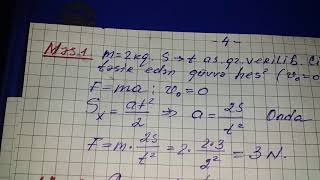 - 4 -
Məs.1 m=2kg. S → t as. qr. verilib. Ci
təsir edən qüvvə hes? (v₀=0
F = ma ; v₀ = 0
Sₓ = at²/2 ⇒ a = 2S/t² Onda
F = m · 2S/t² = 2 · 2·3/2² = 3 N.